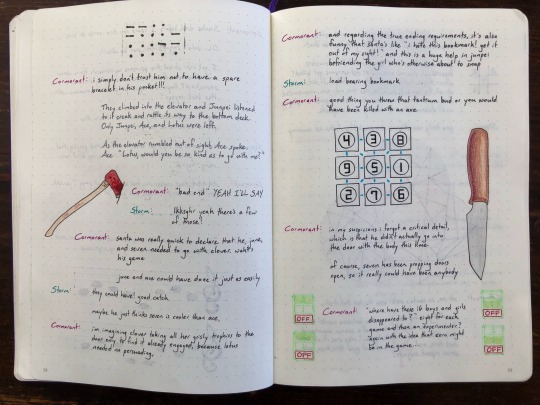 Cormorant: i simply don't trust him not to have a spare
bracelet in his pocket!!
They climbed into the elevator and Junpei listened
to it creak and rattle its way to the bottom deck.
Only Junpei, Ace, and Lotus were left.
As the elevator rumbled out of sight, Ace spoke.
Ace "Lotus, would you be so kind as to go with me?"
Cormorant: "bad end" YEAH I'LL SAY
Storm: yeah there's a few
of those!
Cormorant: santa was really quick to declare that he, june,
and seven needed to go with clover. what's
his game
june and ace could have done it just as easily
Storm: they could have! good catch.
maybe he just thinks seven is cooler than ace.
Cormorant: i'm imagining clover taking all her grisly trophies to the
door, only to find it already engaged, because lotus
needed no persuading.
Cormorant: and regarding the true ending requirements, it's also
funny that santa's like "i hate this bookmark! get it
out of my sight!" and this is a huge help in junpei
befriending the girl who's otherwise about to snap
Storm: load bearing bookmark
Cormorant: good thing you threw that tantrum bud or you would
have been killed with an axe
4 3 8
9 5 1
2 7 6
Cormorant: in my suspicions i forgot a critical detail,
which is that he didn't actually go into
the door with the body this time.
of course, seven has been propping doors
open, so it really could have been anybody
Cormorant: "where have these 16 boys and girls
disappeared to?" eight for each
game and then an experimenter?
again with the idea that zero might
be in the game....
OFF
OFF
OFF
OFF